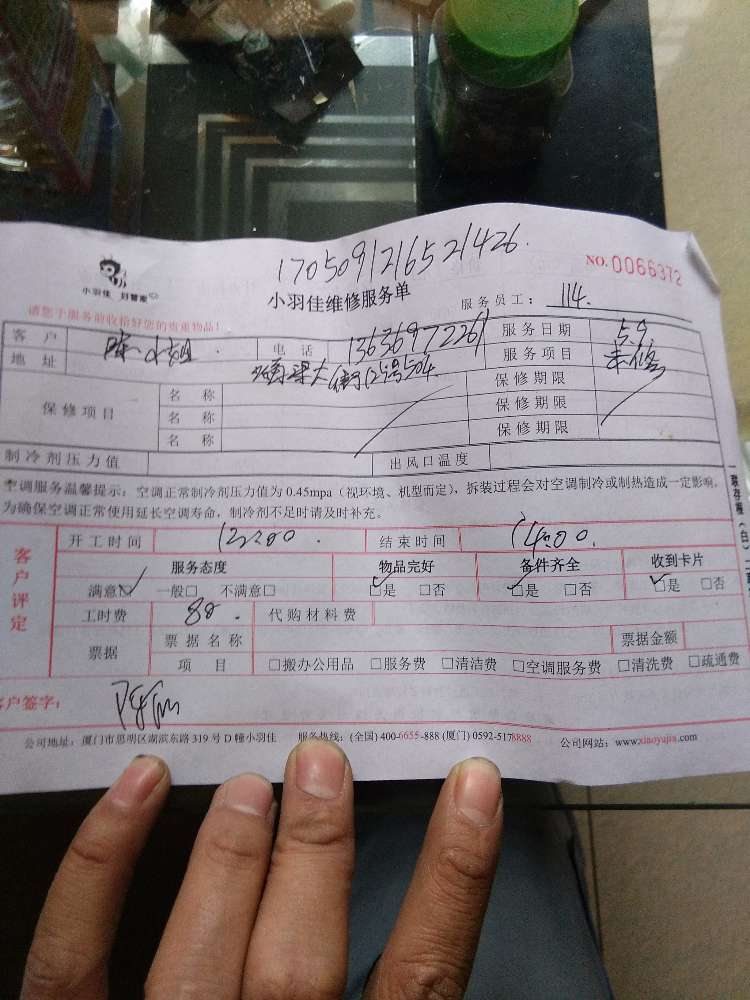 170509121652 1426
NO.0066372
小羽佳 好管家
小羽佳维修服务单
服务员工： 114.
请您于服务前收拾好您的贵重物品！
客户 陈小姐 电话 13636972261 服务日期 5.9
地址 504 服务项目 未修
保修项目 名称 保修期限
名称 保修期限
名称 保修期限
制冷剂压力值 出风口温度
空调服务温馨提示：空调正常制冷剂压力值为 0.45mpa（视环境、机型而定），拆装过程会对空调制冷或制热造成一定影响，
为确保空调正常使用延长空调寿命，制冷剂不足时请及时补充。
客户评定
开工时间 12:00 结束时间 14:00
服务态度 物品完好 备件齐全 收到卡片
满意☑ 一般□ 不满意□ ☑是 □否 ☑是 □否 ☑是 □否
工时费 80. 代购材料费
票据 票据名称 票据金额
项目 □搬办公用品 □服务费 □清洁费 □空调服务费 □清洗费 □疏通费
客户签字：
公司地址：厦门市思明区湖滨东路 319 号 D 幢小羽佳 服务热线：(全国) 400-6655-888 (厦门) 0592-5178888 公司网站：www.xiaoyujia.com